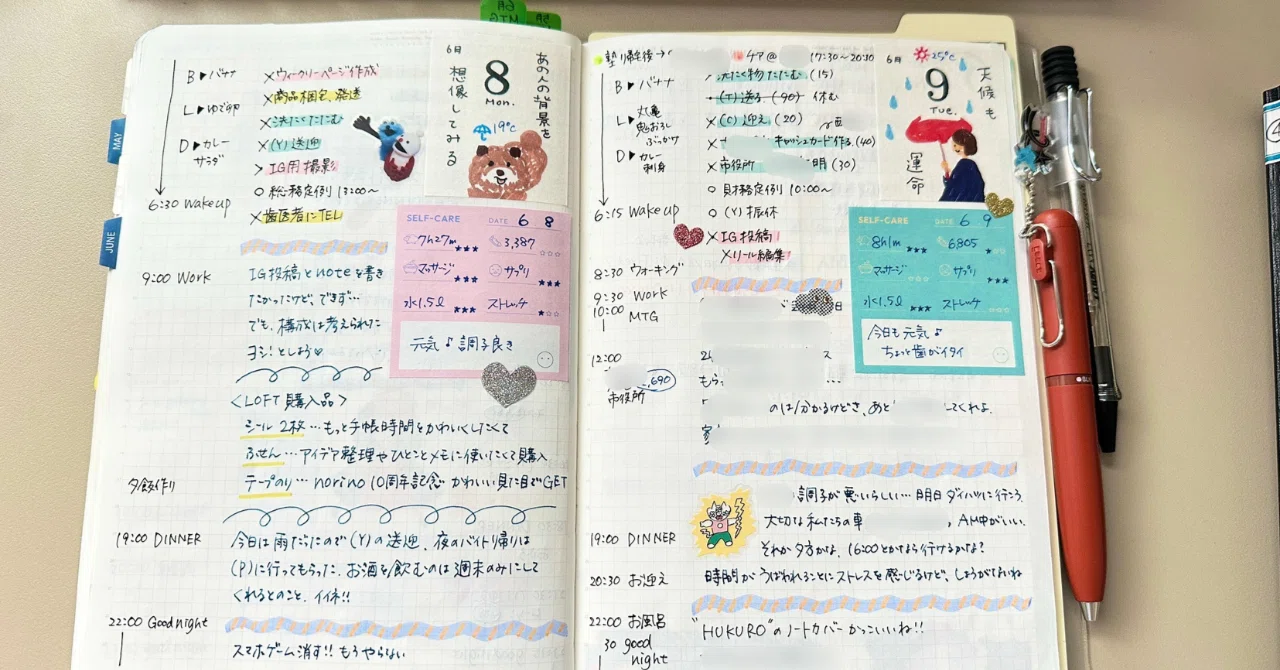 MAY
JUNE
B▶バナナ
L▶ゆで卵
D▶カレー
サラダ
6:30 Wake up
9:00 Work
夕飯作り
19:00 DINNER
22:00 Good night
×ウィークリーページ作成
×商品梱包、発送
×洗たくたたむ
×(Y)送迎
>IG用撮影
○総務定例 13:00〜
×歯医者にTEL
6月
8
Mon.
あの人の背景を
想像してみる
19°C
SELF-CARE DATE 6 8
7h27m ★★★ 3,387 ☆☆☆
マッサージ ★★★ サプリ ★★★
水1.5ℓ ★★★ ストレッチ ★☆☆
元気♪調子良き
IG投稿とnoteを書き
たかったけど、できず…
でも、構成は考えられた
ヨシ!としよう♡
<LOFT購入品>
シール2枚…もっと手帳時間をかわいくしたくて
ふせん…アイデア整理やひとことメモに使いたくて購入
テープのり…norino 10周年記念 かわいい見た目でGET
今日は雨だったので(Y)の送迎、夜のバイト帰りは
(P)に行ってもらった。お酒を飲むのは週末のみにして
くれるとのこと、イイネ!!
スマホゲーム消す!! もうやらない
塾り帰後→
チア@ 17:30〜20:30
B▶バナナ
L▶丸亀
鬼おろし
ぶっかけ
D▶カレー
刺身
6:15 Wake up
8:30 ウォーキング
9:30 Work
10:00 MTG
12:00
,690
市役所
19:00 DINNER
20:30 お迎え
22:00 お風呂
30 good
night
洗たく物たたむ (15)
(T)送る (90) 休む
×(C)迎え (20)
キャッシュカード作る (40)
×市役所 明 (30)
○財務定例 10:00〜
○(Y)振休
×IG投稿
×リール編集
6月
9
Tue.
25°C
天候も
運命
SELF-CARE DATE 6 9
8h1m ★★★ 6805 ★☆☆
マッサージ ★★★ サプリ ★★★
水1.5ℓ ★★★ ストレッチ ★☆☆
今日も元気♪
ちょっと歯がイタイ
もら
のは分かるけどさ、あと してくれよ
調子が悪いらしい…明日ダイハツに行こう
大切な私たちの車 、AM中がいい。
それか夕方かな、16:00とかなら行けるかな?
時間がうばわれることにストレスを感じるけど、しょうがないね
"HUKURO"のノートカバーかっこいいね!!